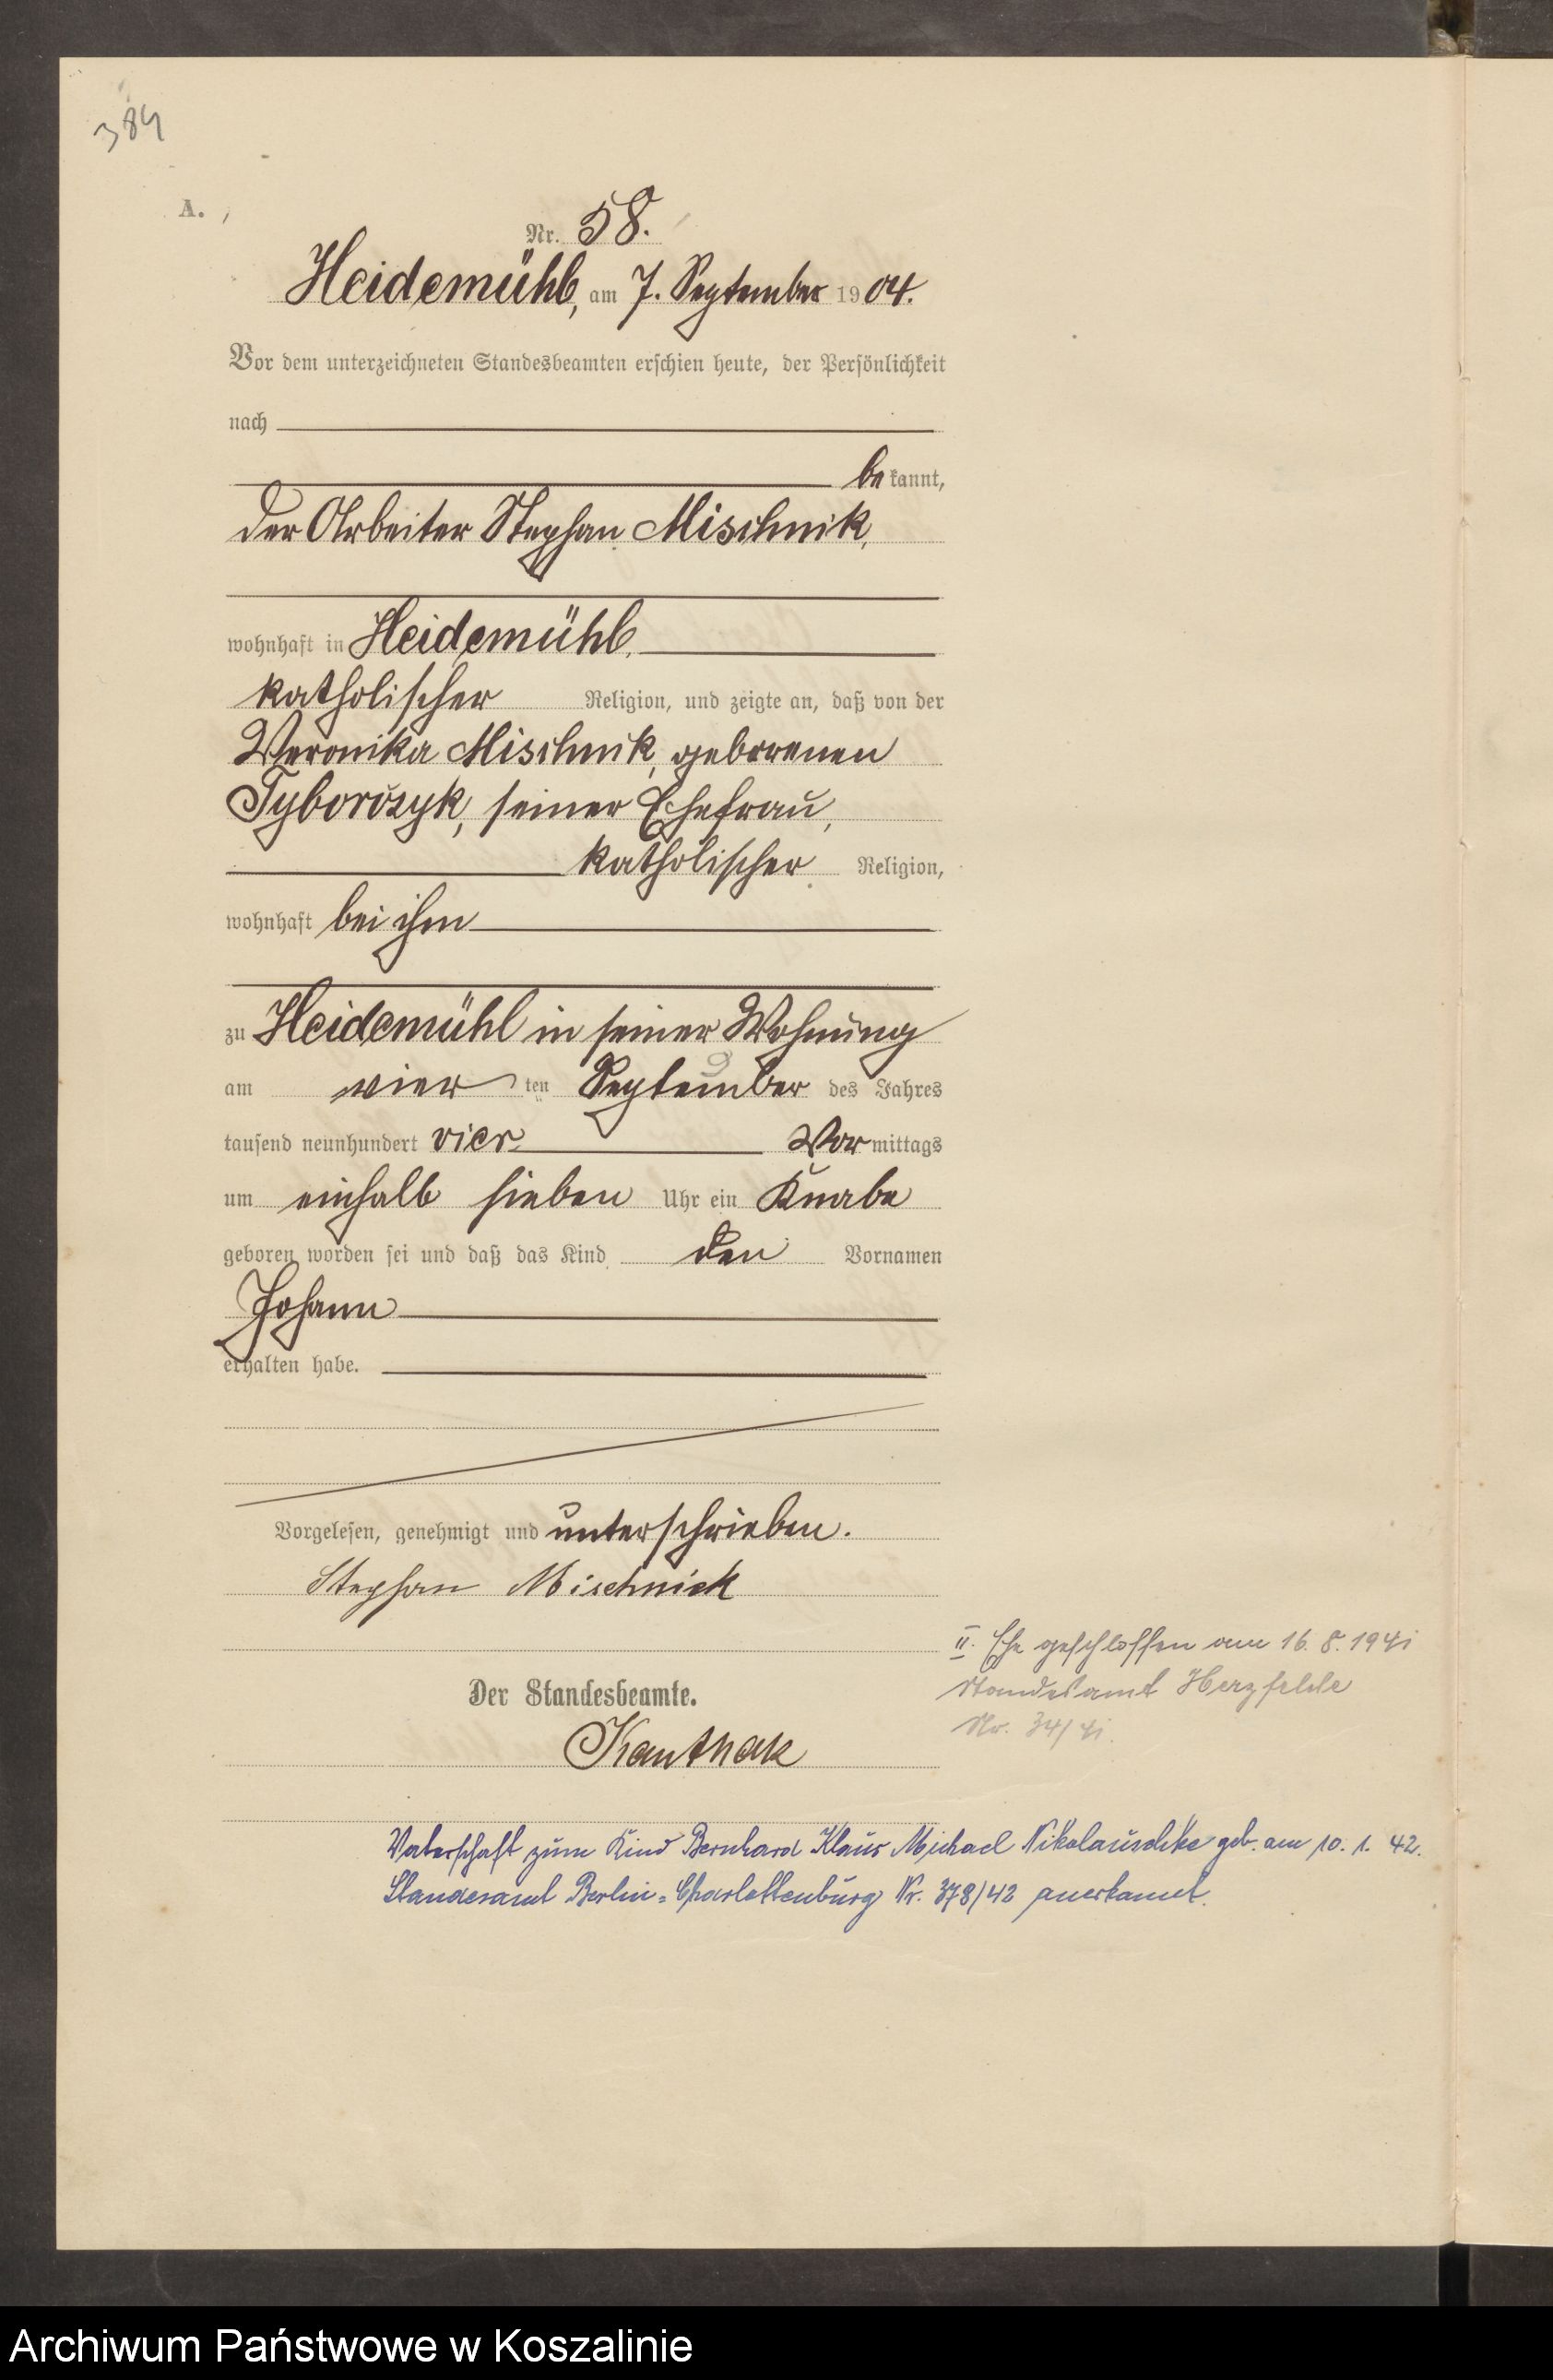 384
A.
Nr. 58.
Heidemühl, am 7. September 1904.
Vor dem unterzeichneten Standesbeamten erschien heute, der Persönlichkeit
nach
bekannt,
der Arbeiter Stephan Mischnik,
wohnhaft in Heidemühl,
katholischer Religion, und zeigte an, daß von der
Veronika Mischnik, geborenen
Tyborczyk, seiner Ehefrau,
katholischer Religion,
wohnhaft bei ihm
zu Heidemühl in seiner Wohnung
am vierten September des Jahres
tausend neunhundert vier, Vormittags
um einhalb sieben Uhr ein Knabe
geboren worden sei und daß das Kind den Vornamen
Johann
erhalten habe.
Vorgelesen, genehmigt und unterschrieben.
Stephan Mischnick
II. Ehe geschlossen am 16.8.1941
Standesamt Herzfelde
Nr. 34/41.
Der Standesbeamte.
Kanthak
Vaterschaft zum Kind Bernhard Klaus Michael Nikolauschke geb. am 10.1.42.
Standesamt Berlin=Charlottenburg Nr. 378/42 anerkannt.
Archiwum Państwowe w Koszalinie